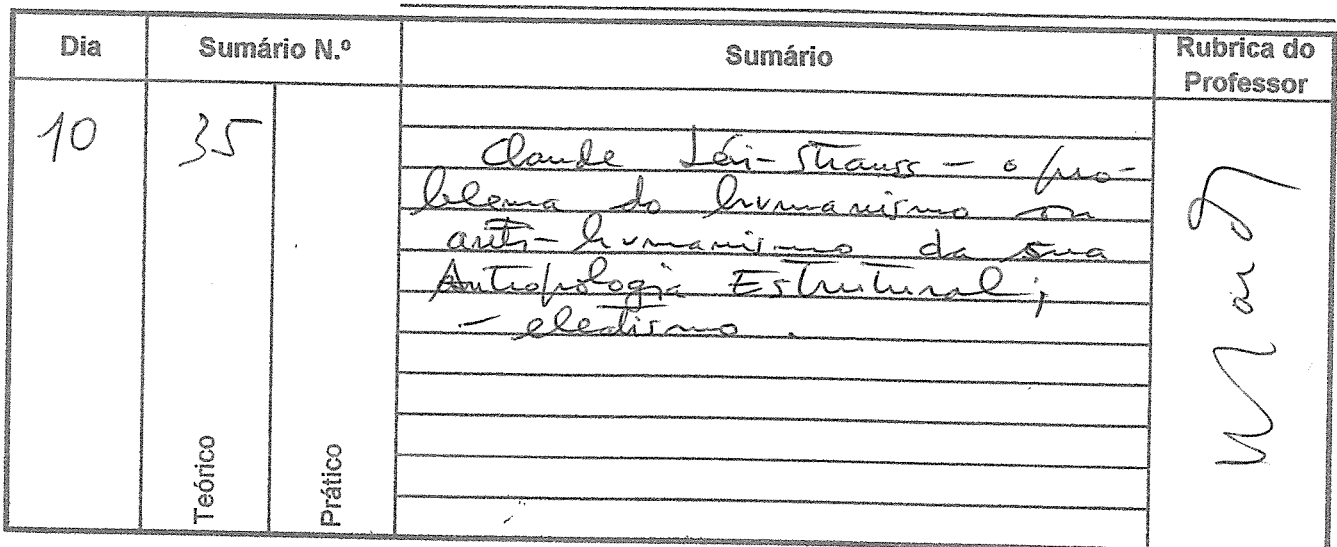 Dia Sumário N.º Sumário Rubrica do Professor
10 35
Claude Lévi-Strauss - o pro-
blema do humanismo ou
anti-humanismo da sua
Antropologia Estrutural;
-
Teórico Prático